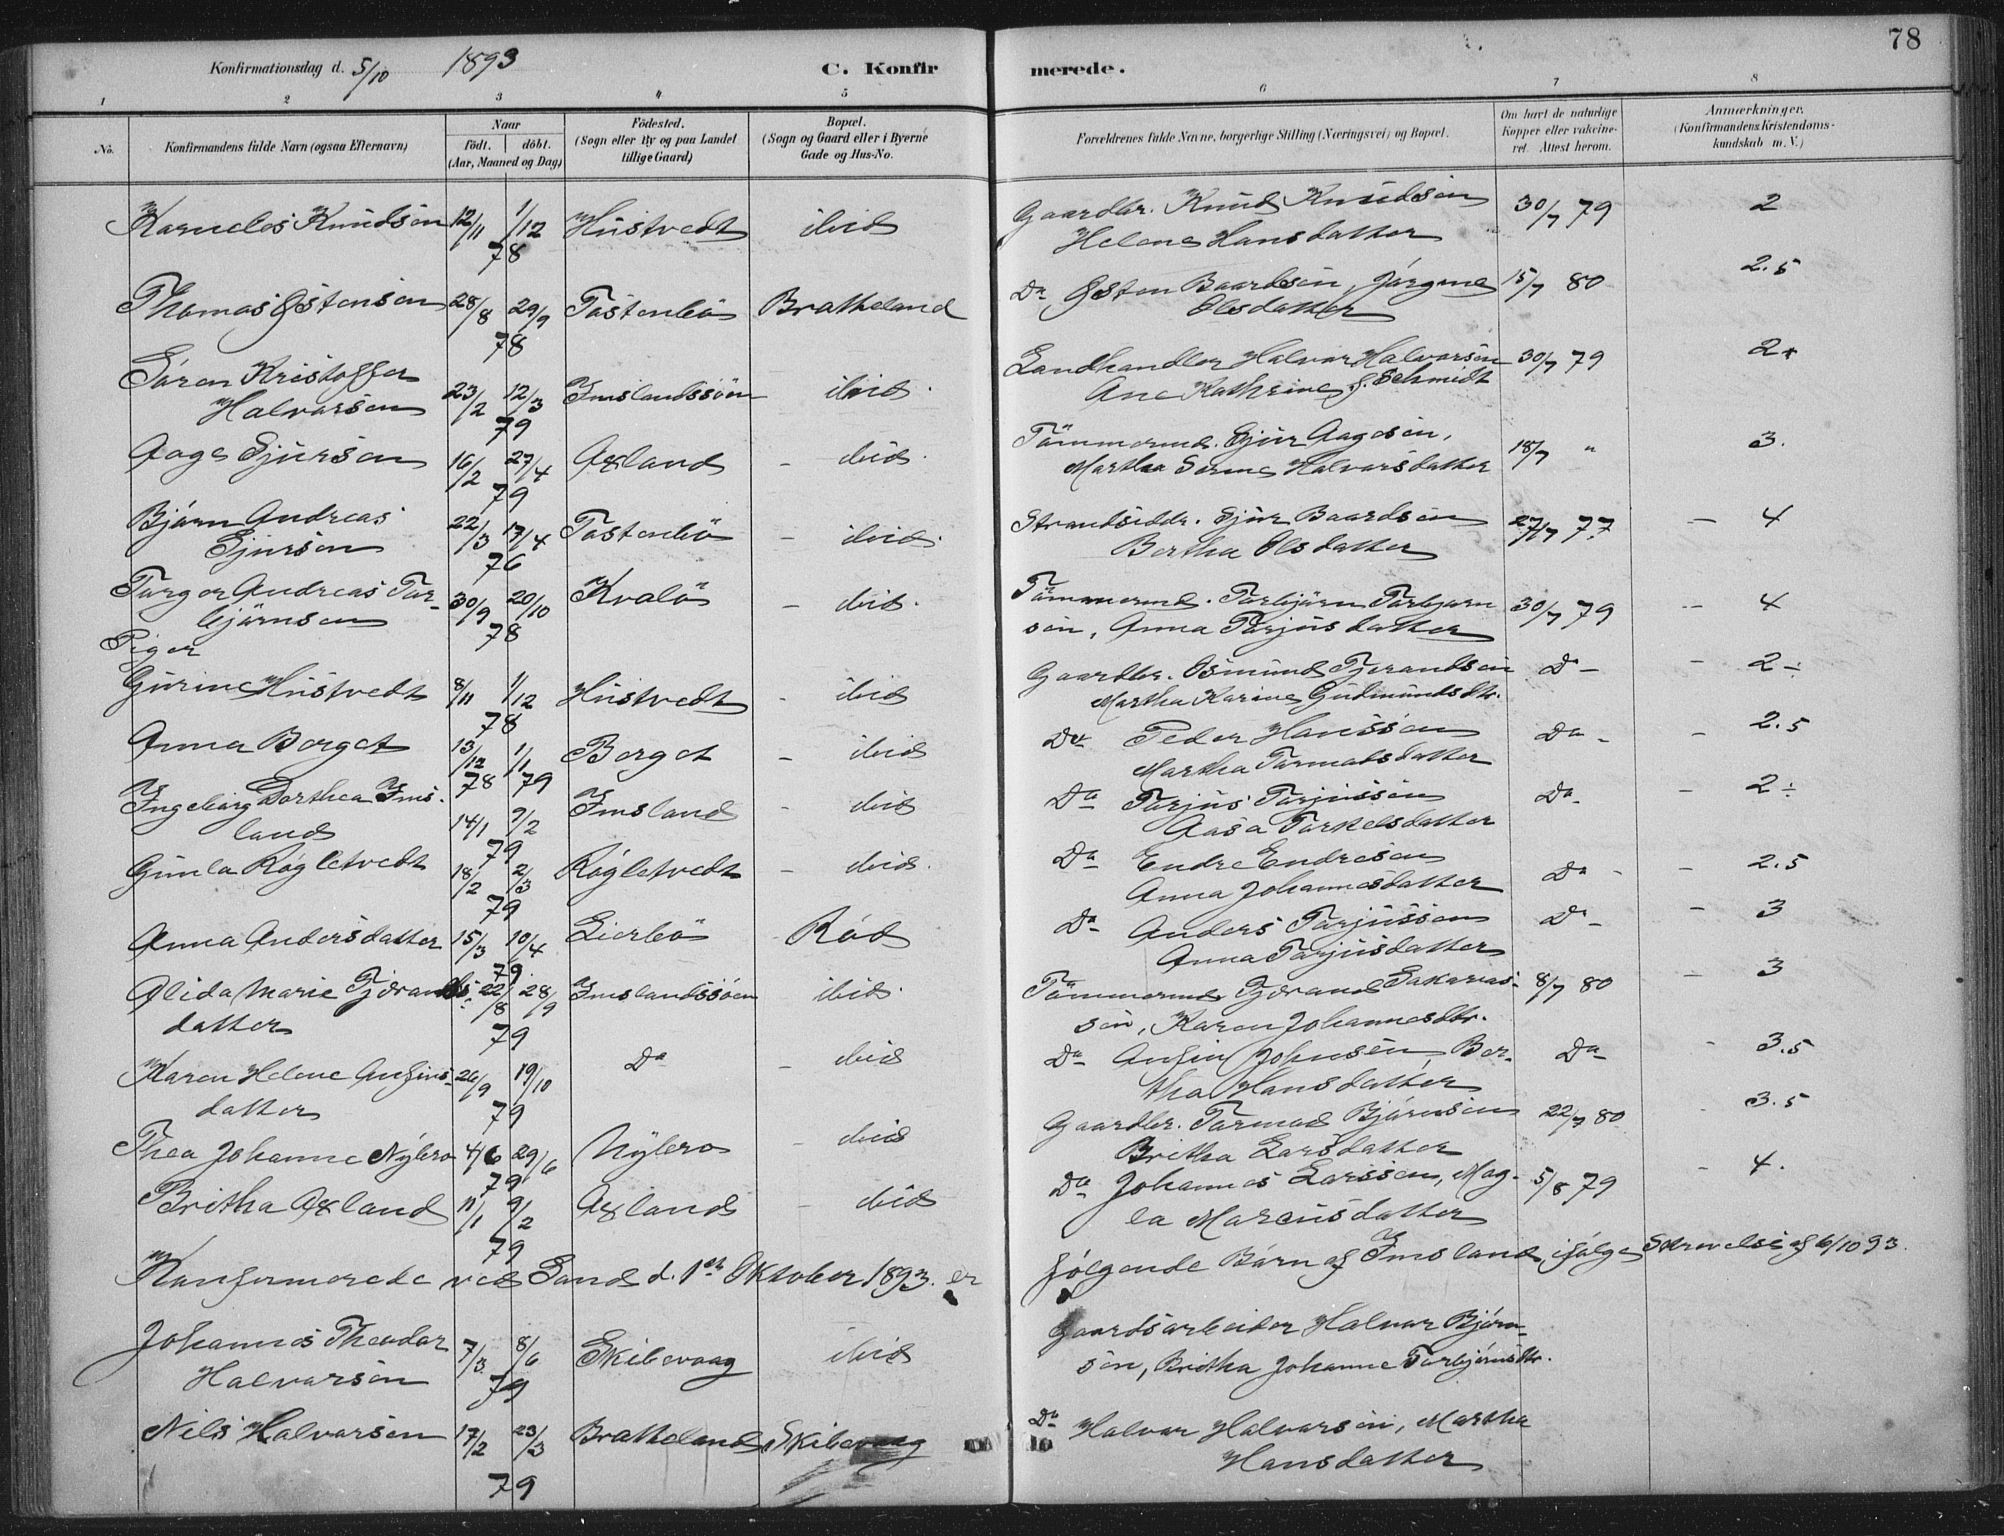 78
Konfirmationsdag d. 5/10 1893 C. Konfirmerede.
1 2 3 4 5 6 7 8
No. Konfirmandens fulde Navn (ogsaa Efternavn) Naar født. døbt. (Aar, Maaned og Dag) Fødested. (Sogn eller By og paa Landet tillige Gaard) Bopæl. (Sogn og Gaard eller i Byerne Gade og Hus-No. Forældrenes fulde Navne, borgerlige Stilling (Næringsvei) og Bopæl. Om havt de naturlige Kopper eller vakcineret. Attest herom. Anmærkninger. (Konfirmandens Kristendomskundskab m. V.)
Karnelos Knudsen 12/11 1/12 78 Hustvedt ibid Gaardbr. Knud Knudsen
Helene Hansdatter 30/7 79 2
Thomas Østensen 28/8 29/9 78 Tostenbø Bratheland Do Østen Baardsen, Jørgine
Olsdatter 15/7 80 2.5
Søren Kristoffer
Halvorsen 23/2 12/3 79 Imslandssøen ibid. Landhandler Halvor Halvorsen
Ane Kathrine f. Schmidt 30/7 79 2+
Aage Sjursen 16/2 27/4 79 Axland - ibid. Tømmermd. Sjur Aagesen,
Martha Serine Halvorsdatter 18/7 " 3.
Bjørn Andreas
Sjursen 22/3 17/4 76 Tostenbø - ibid. Strandsidder. Sjur Baardsen
Bertha Olsdatter 27/7 77 - 4
Torger Andreas Tor-
bjørnsen 30/9 20/10 78 Kvalø - ibid. Tømmermd. Torbjørn Torbjørn
sen, Anna Torjusdatter 30/7 79 - 4
Piger
Gurine Hustvedt 8/11 1/12 78 Hustvedt - ibid Gaardbr. Osmund Tjerandsen
Martha Karine Gudmundsdtr. Do - - 2÷
Anna Berget 13/12 78 1/1 79 Berget - ibid Do Peder Hanssen
Martha Tormodsdatter Do - - 2.5
Ingeborg Dorthea Ims-
land 14/1 9/2 79 Imsland - ibid Do Torjus Torjussen
Aasa Torkelsdatter Do - - 2÷
Gunla Røgletvedt 18/2 2/3 79 Røgletvedt - ibid. Do Endre Endresen
Anna Johannesdatter Do - - 2.5
Anna Andersdatter 15/3 10/4 79 Lierbø Rød Do Anders Torjussen
Anna Torjusdatter Do - - 3
Alida Marie Tjerands-
datter 22/8 28/9 79 Imslandssøen ibid. Tømmermd. Tjerand Sakarias-
sen, Karen Johannesdtr. 8/7 80 - 3
Maren Helene Anfins-
datter 26/9 19/10 79 Do - ibid Do Anfin Johnsen, Ber-
tha Hansdatter Do - 3.5
Thea Johanne Nylero 4/6 29/6 79 Nylero - ibid Gaardbr. Tormod Bjørnsen
Britha Larsdatter 22/7 80 - 3.5
Britha Axland 11/1 9/2 79 Axland - ibid Do Johannes Larssen, Mag-
la Marcusdatter 5/8 79 - 4.
Konfirmerede ved Sand d. 1ste Oktober 1893. er følgende Børn af Imsland ifølge Skrivelse af 6/10 93.
Johannes Theodor
Halvorsen 7/3 8/6 79 Skibevaag ibid Gaardsarbeider Halvor Bjørn-
sen, Britha Johanne Torbjørnsdtr.
Nils Halvorsen 17/2 23/3 79 Bratheland Skibevaag Do Halvor Halvorsen, Martha
Hansdatter